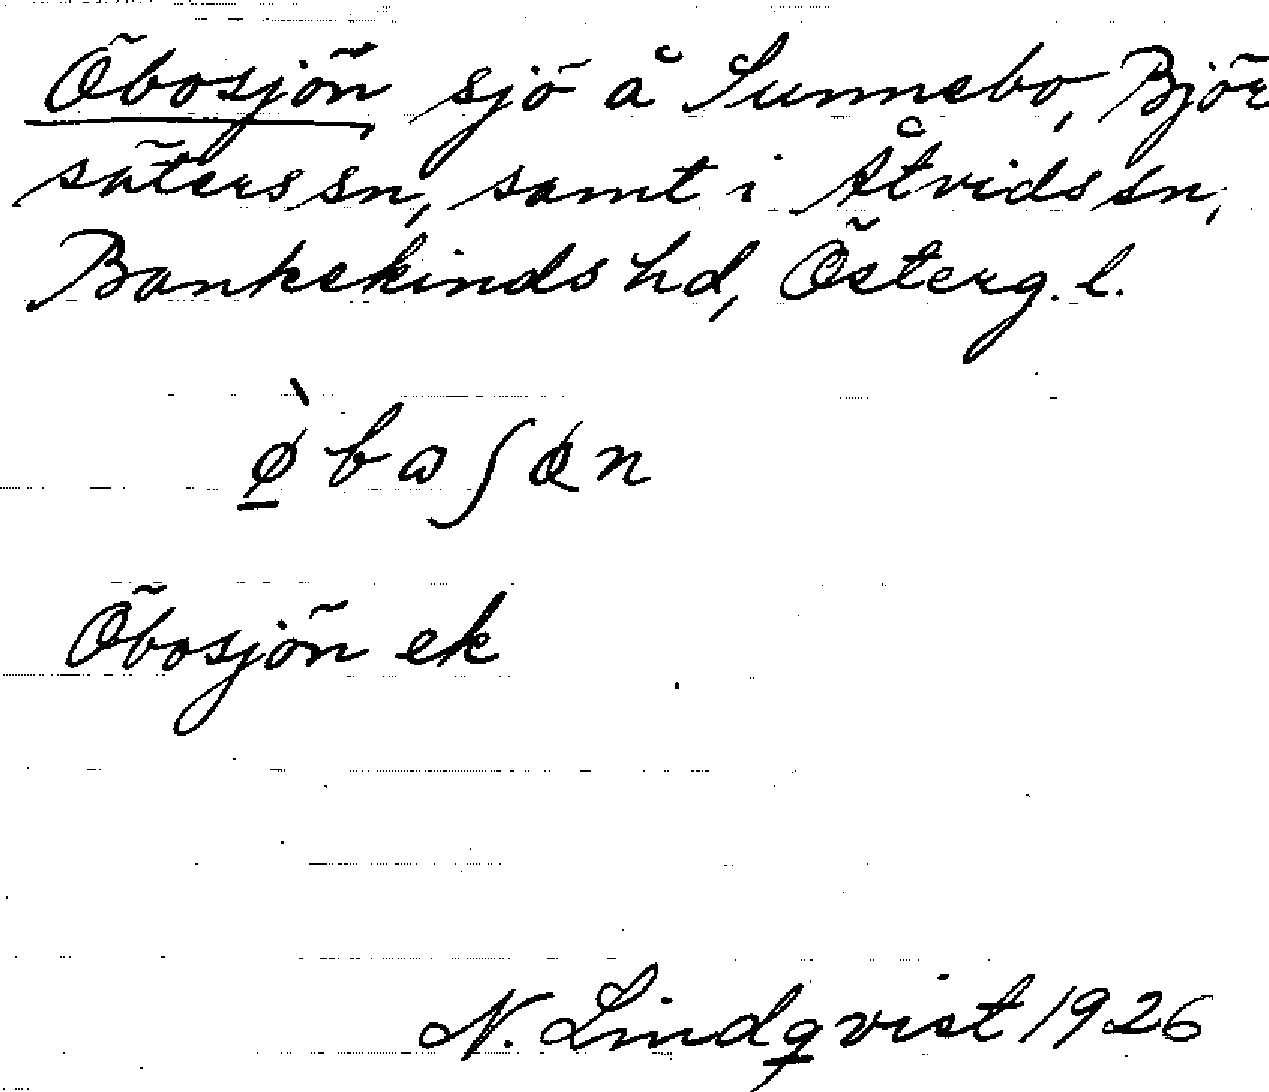 Öbosjön sjö å Sunnebo, Björ
säters sn, samt i Åtvids sn,
Bankekinds hd, Österg. l.
ø̠̀baʃøn
Öbosjön ek
N. Lindqvist 1926